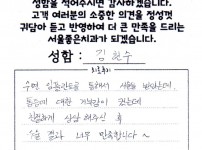 성함을 적어주시면 감사하겠습니다.
고객 여러분의 소중한 의견을 정성껏
귀담아 듣고 반영하여 더 큰 만족을 드리는
서울좋은치과가 되겠습니다.
성함 : 김현수
수면 임플란트를 통해서 시술을 받았는데
통증에 대한 거부감이 컸는데
친절하게 상담 해주신 후
수술 결과 너무 만족합니다 ~